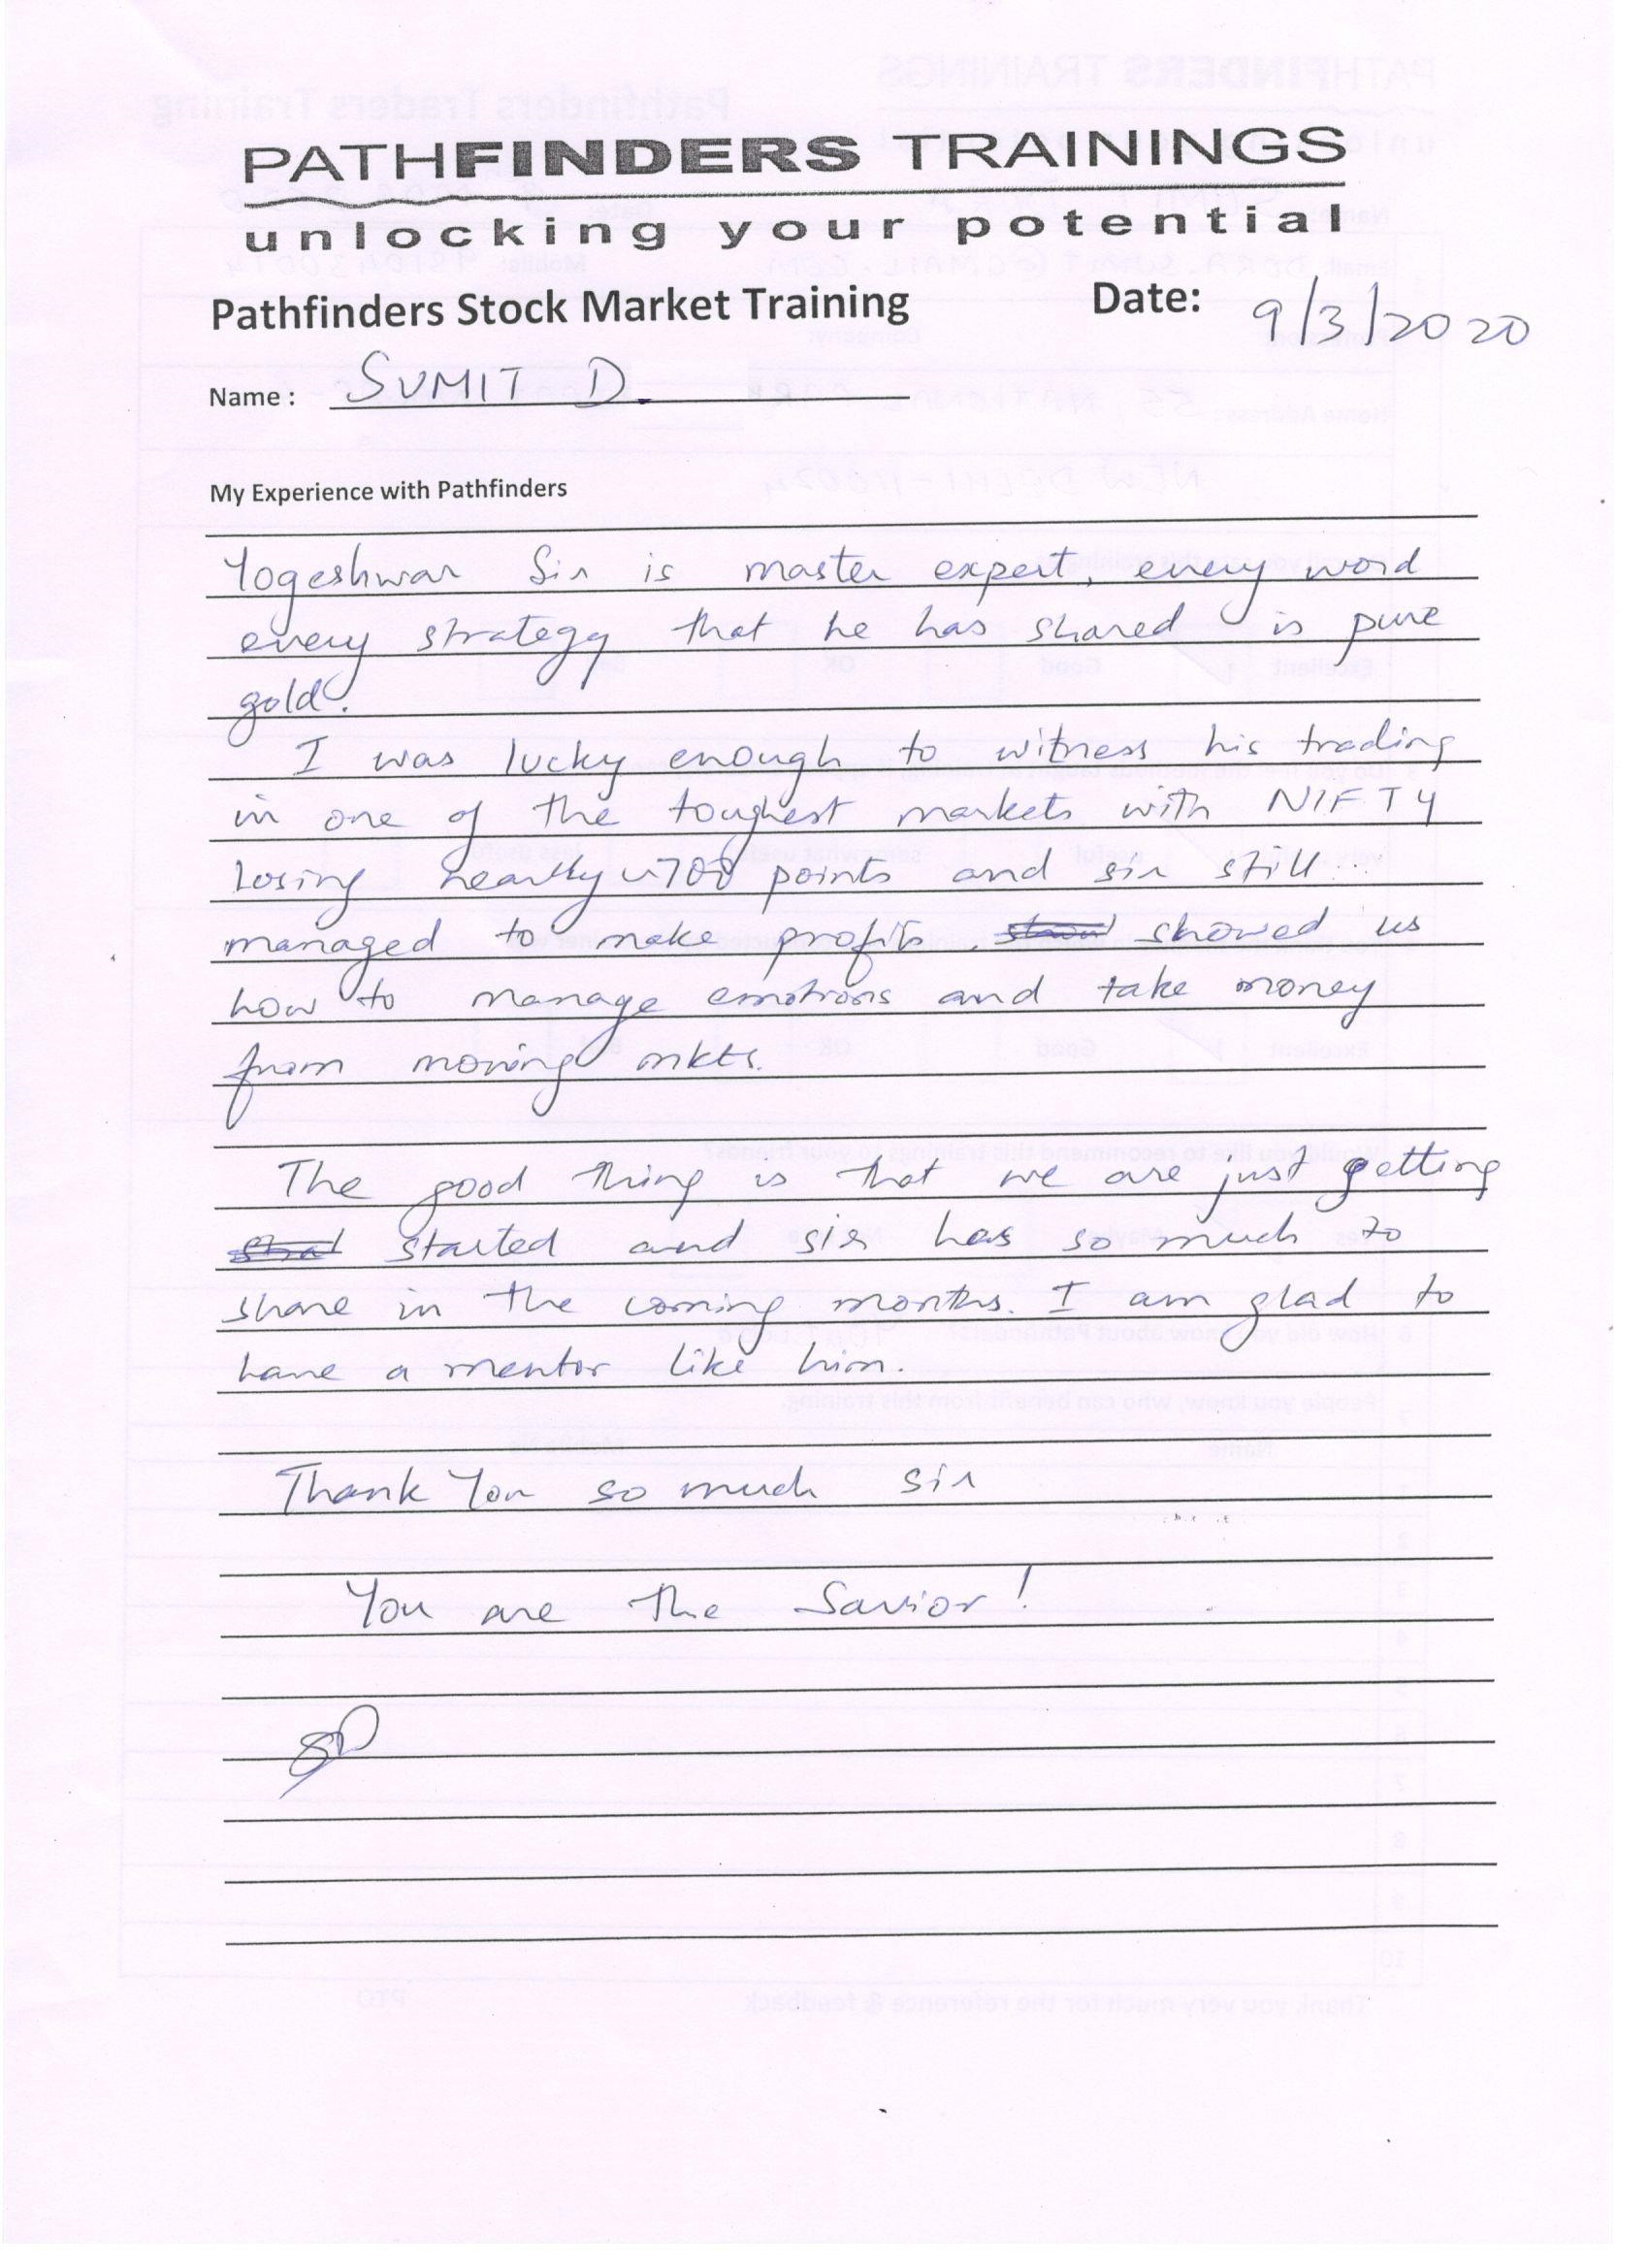 PATHFINDERS TRAININGS
unlocking your potential
Pathfinders Stock Market Training Date: 9/3/2020
Name : SUMIT D.
My Experience with Pathfinders
Yogeshwar Sir is master expert, every word
every strategy that he has shared is pure
gold.
I was lucky enough to witness his trading
in one of the toughest markets with NIFTY
losing nearly ~700 points and sir still
managed to make profits, showed us
how to manage emotions and take money
from moving mkts.
The good thing is that we are just getting
started and sir has so much to
share in the coming months. I am glad to
have a mentor like him.
Thank You so much sir
You are the Savior!
SD